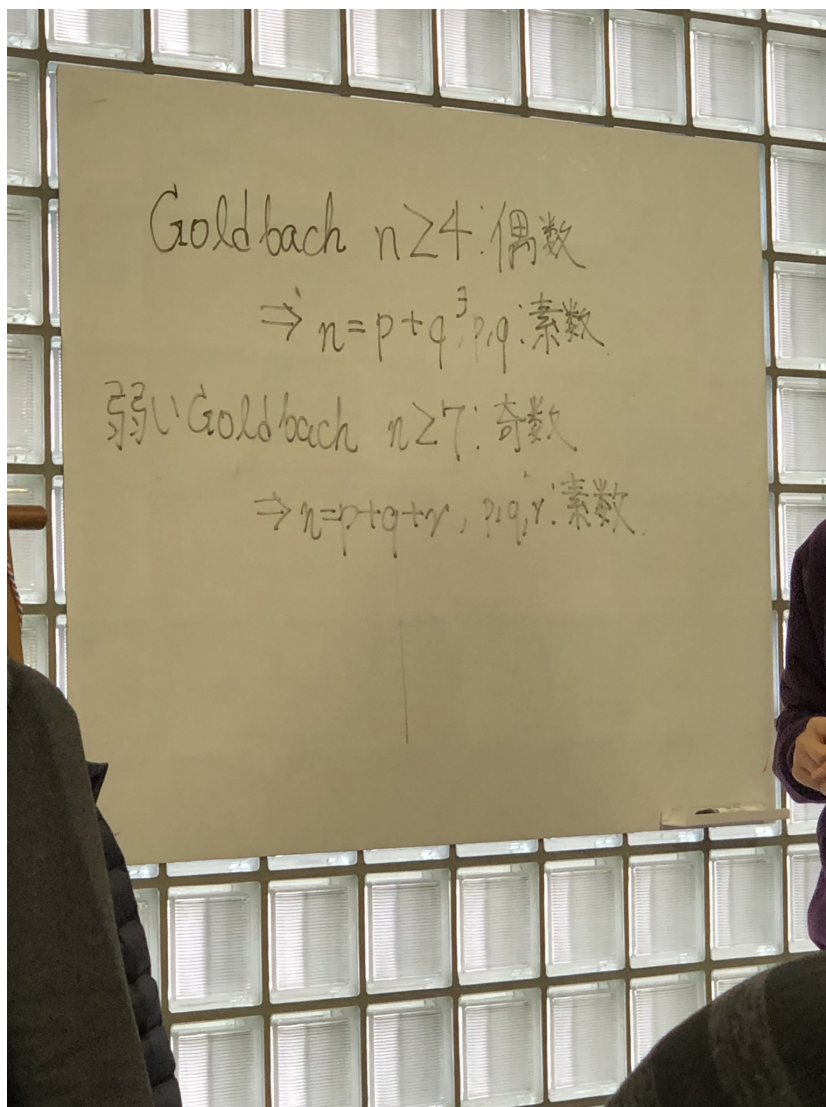 Goldbach n≥4:偶数
⇒ n=p+q³, p,q:素数.
弱いGoldbach n≥7:奇数
⇒ n=p+q+r, p,q,r:素数.